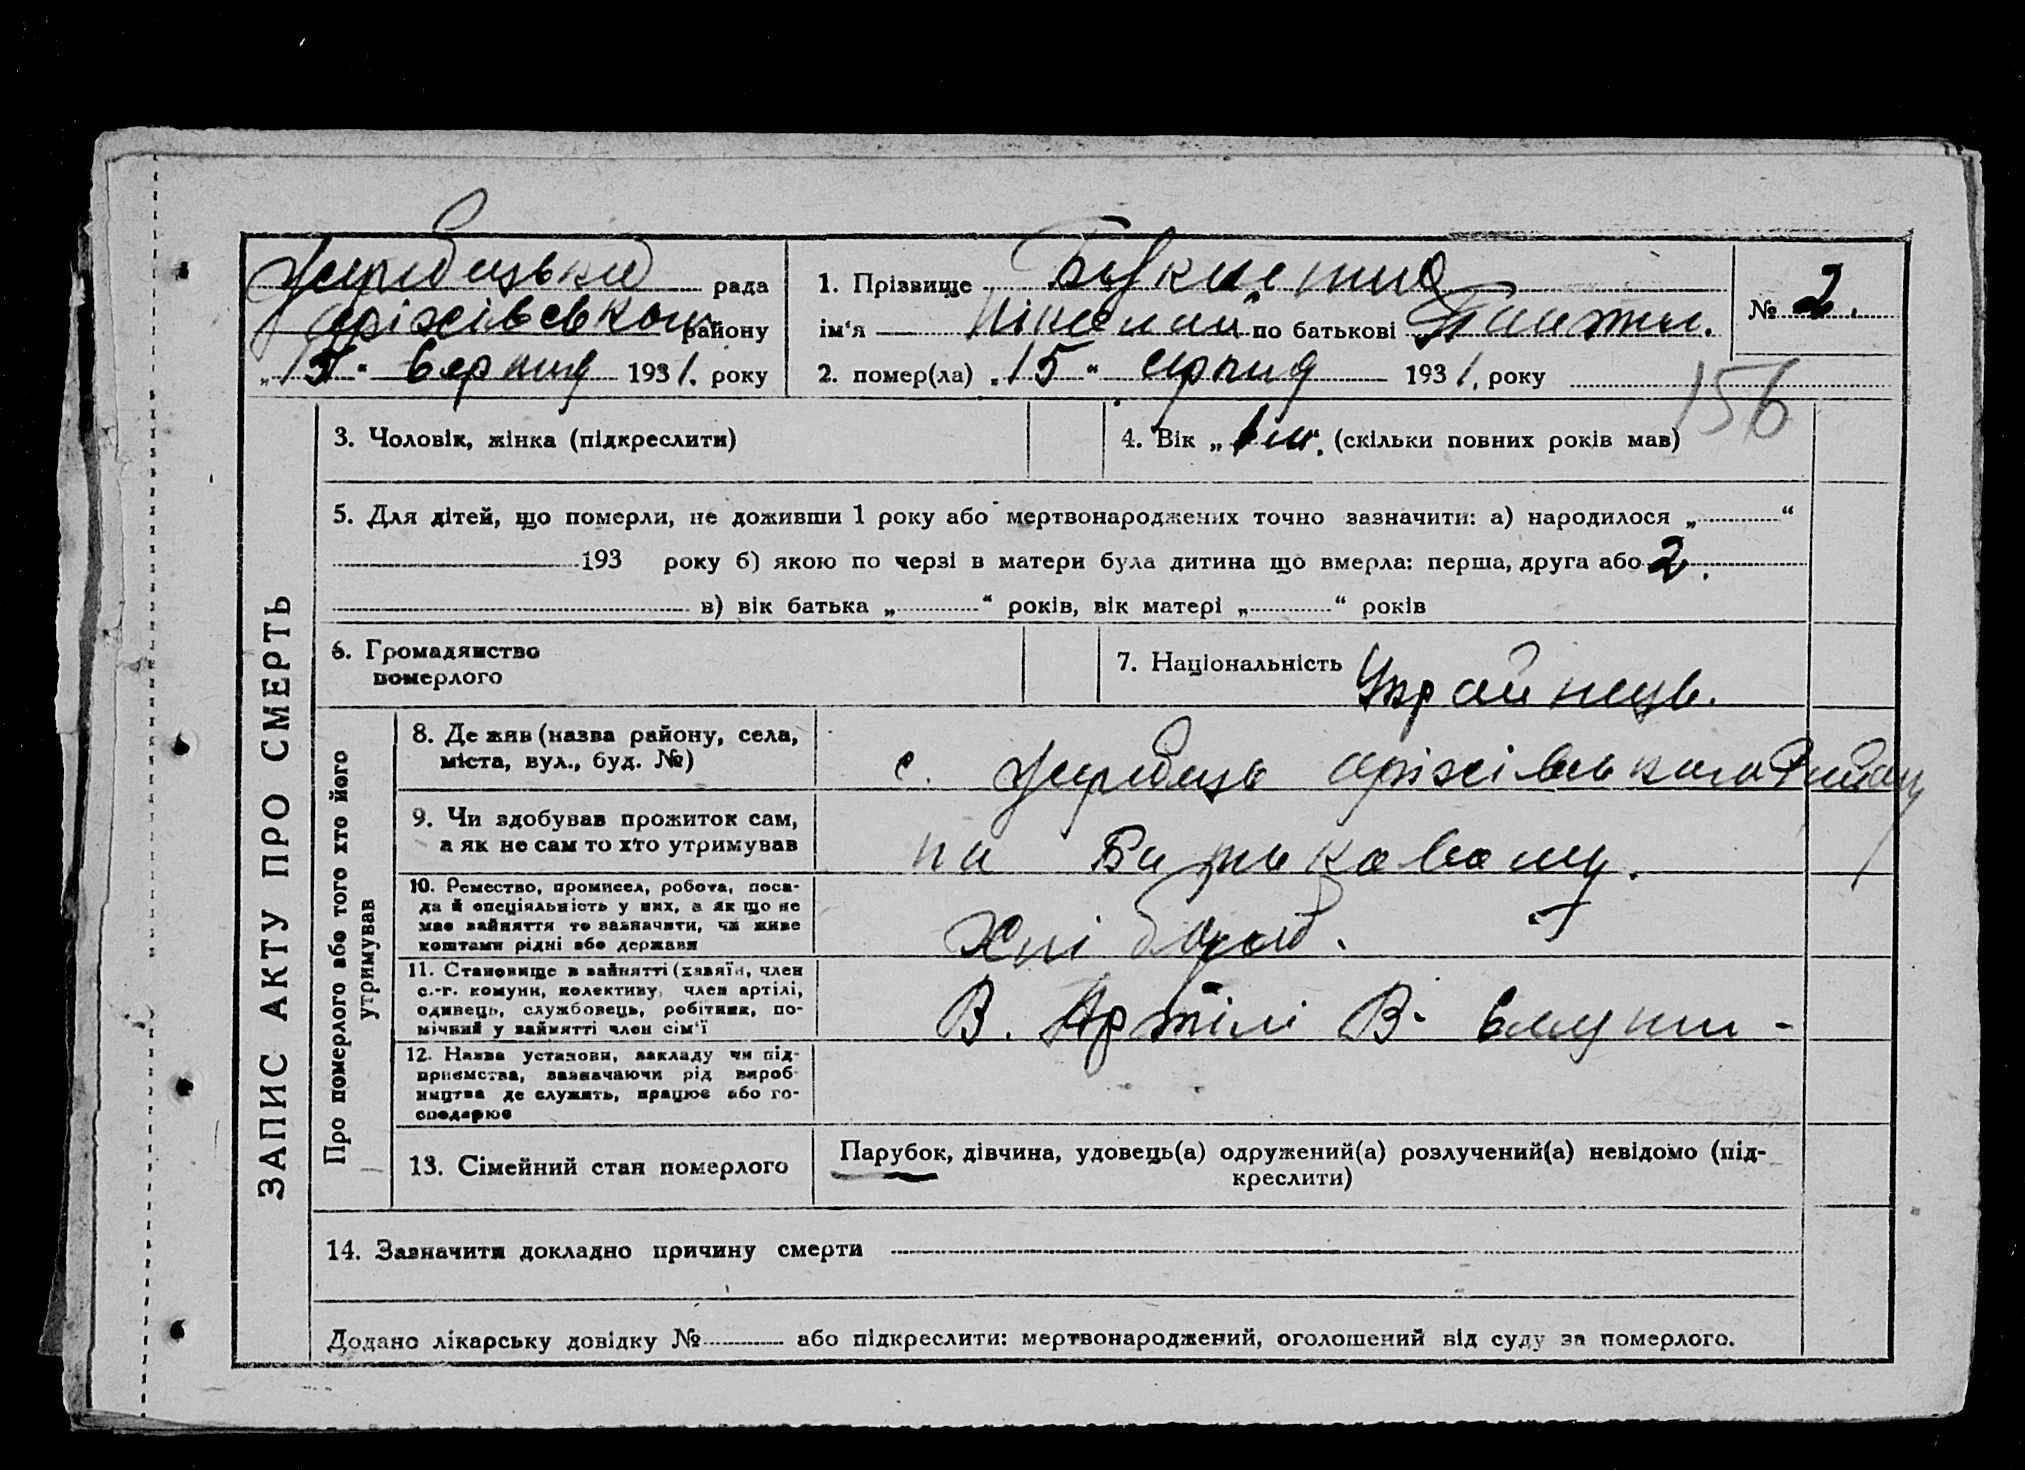 рада
району
193 1. року
1. Прізвище
ім'я по батькові
2. помер(ла) „ 15 “ серпня 193 1. року
№ 2.
156
3. Чоловік, жінка (підкреслити)
4. Вік „ 1 м. “ (скільки повних років мав)
5. Для дітей, що померли, не доживши 1 року або мертвонароджених точно зазначити: а) народилося „ “
193 року б) якою по черзі в матери була дитина що вмерла: перша, друга або 2.
в) вік батька „ “ років, вік матері „ “ років
6. Громадянство
померлого
7. Національність Українець.
ЗАПИС АКТУ ПРО СМЕРТЬ
Про померлого або того хто його
утримував
8. Де жив (назва району, села,
міста, вул., буд. №)
с.
9. Чи здобував прожиток сам,
а як не сам то хто утримував
на Батьковому.
10. Ремество, промисел, робота, поса-
да й спеціяльність у них, а як що не
має зайняття то зазначити, чи живе
коштами рідні або держави
Хлібороб.
11. Становище в зайнятті (хазяїн, член
с.-г. комуни, колективу, член артілі,
одинець, службовець, робітник, по-
мічний у зайнятті член сім'ї
В. Артілі В.
12. Назва установи, закладу чи під-
приємства, зазначаючи рід вироб-
ництва де служить, працює або го-
сподарює
13. Сімейний стан померлого
Парубок, дівчина, удовець(а) одружений(а) розлучений(а) невідомо (під-
креслити)
14. Зазначити докладно причину смерти
Додано лікарську довідку № або підкреслити: мертвонароджений, оголошений від суду за померлого.